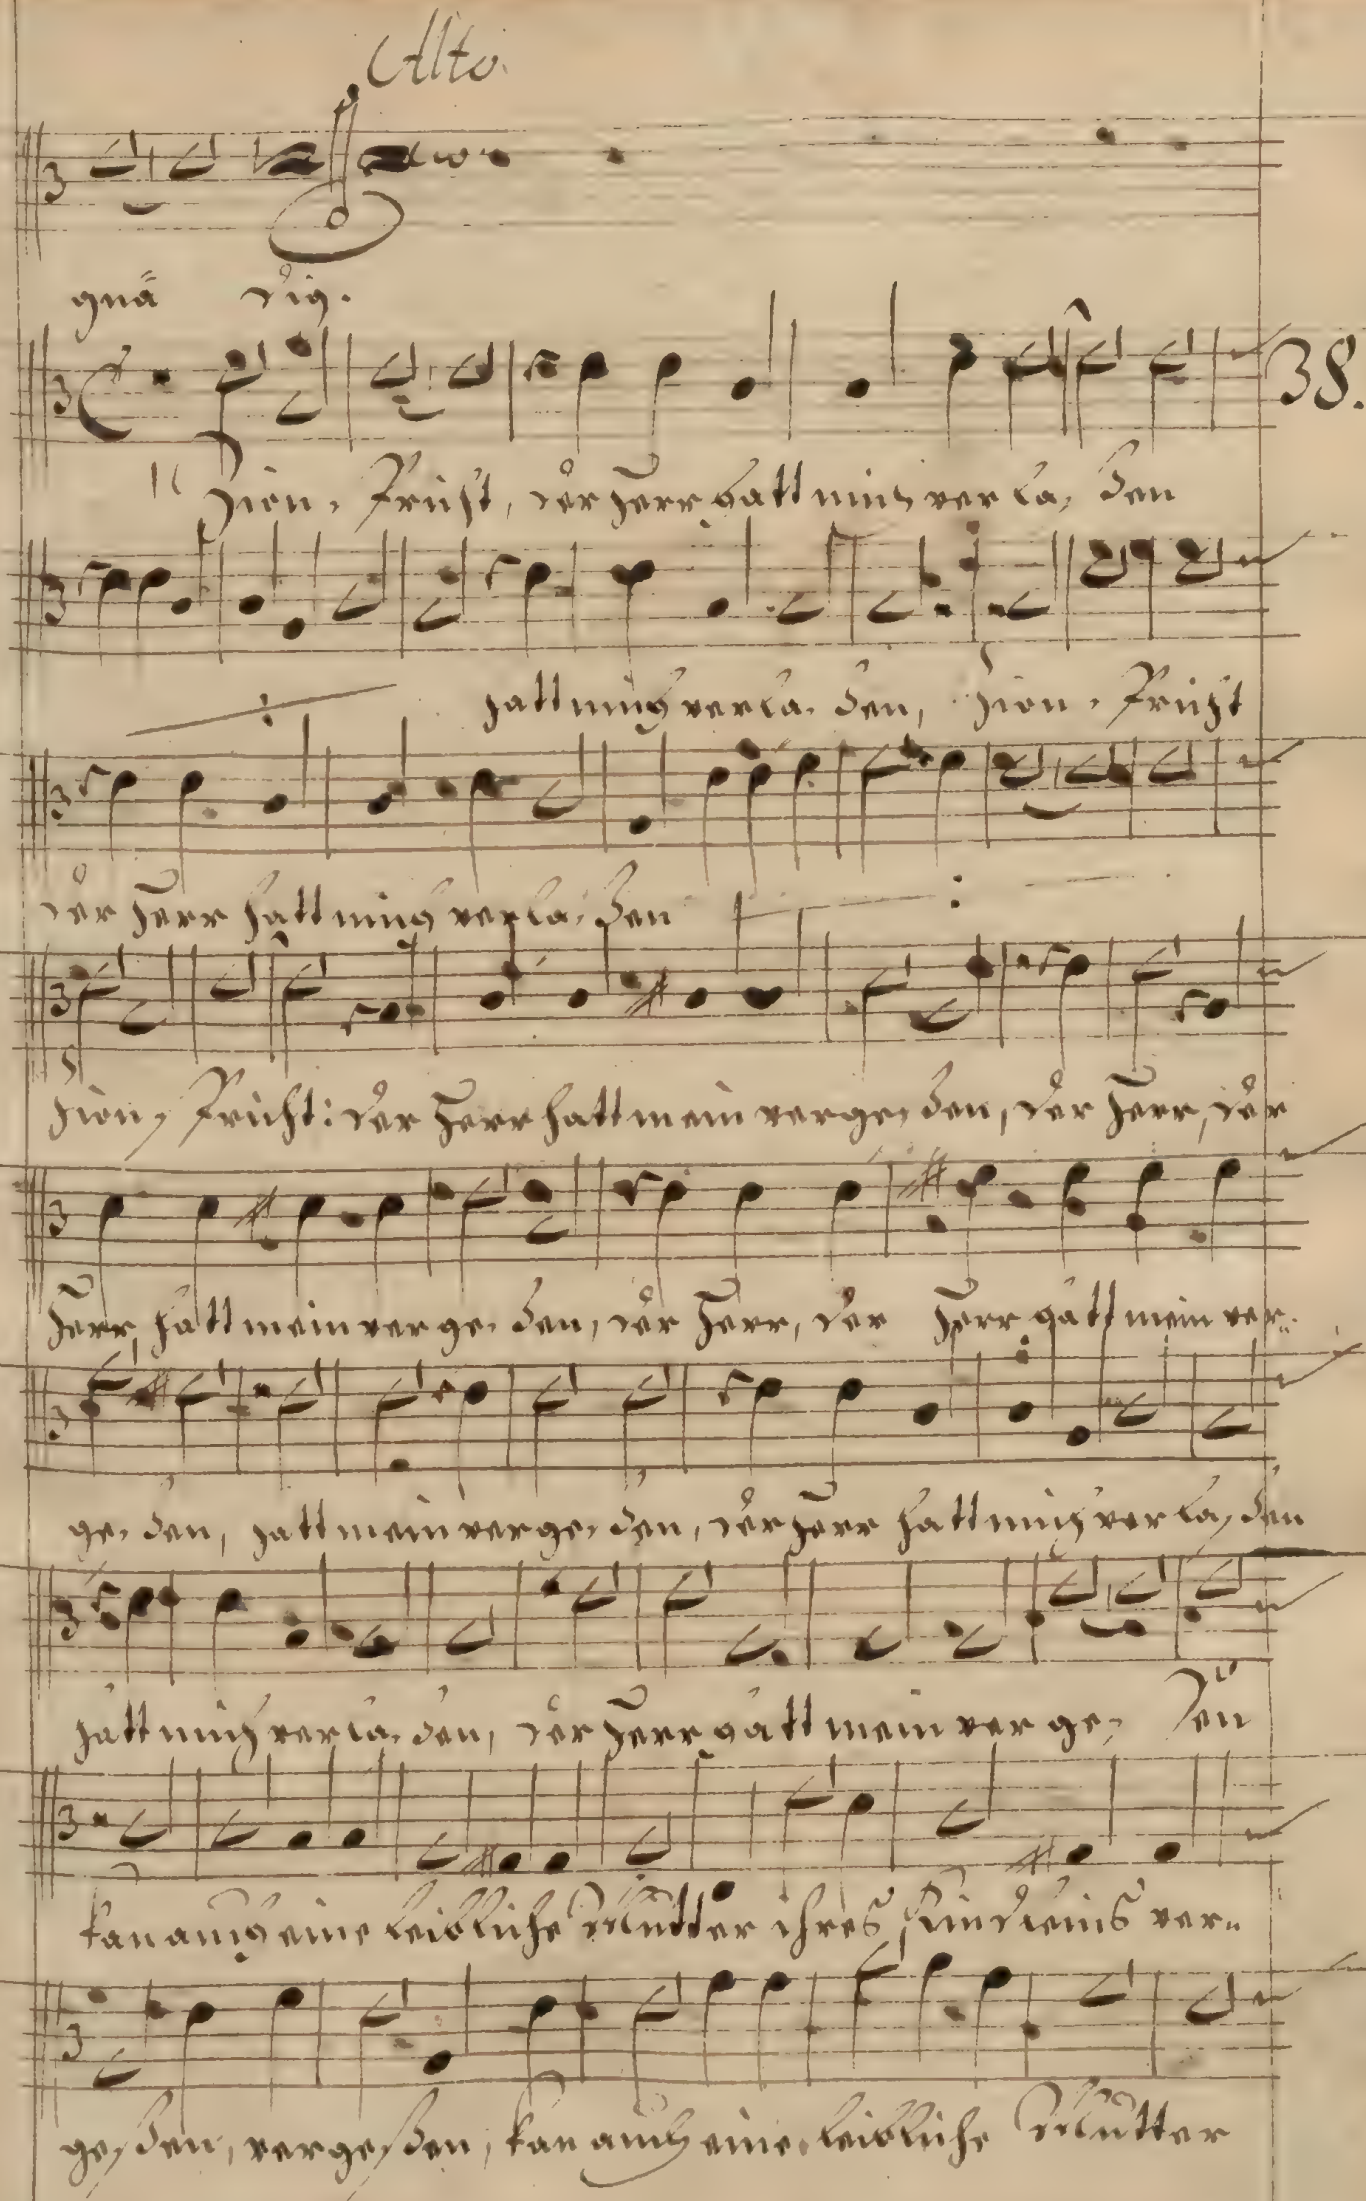 Alto.
gnä dig.
38.
Zion, spricht, der Herr hatt mich verla, ßen
hatt mich verla, ßen, Zion, spricht
der Herr hatt mich verla, ßen
Zion, spricht: der Herr hatt mein verge, ßen, der Herr, der
Herr, hatt mein verge, ßen, der Herr, der Herr hatt mein ver,,
ge, ßen, hatt mein verge, ßen, der Herr hatt mich verla, ßen
hatt mich verla, ßen, der Herr hatt mein verge, ßen
kan auch eine leibliche Mutter ihres Kindleins ver,,
geßen, vergeßen, kan auch eine leibliche Mutter